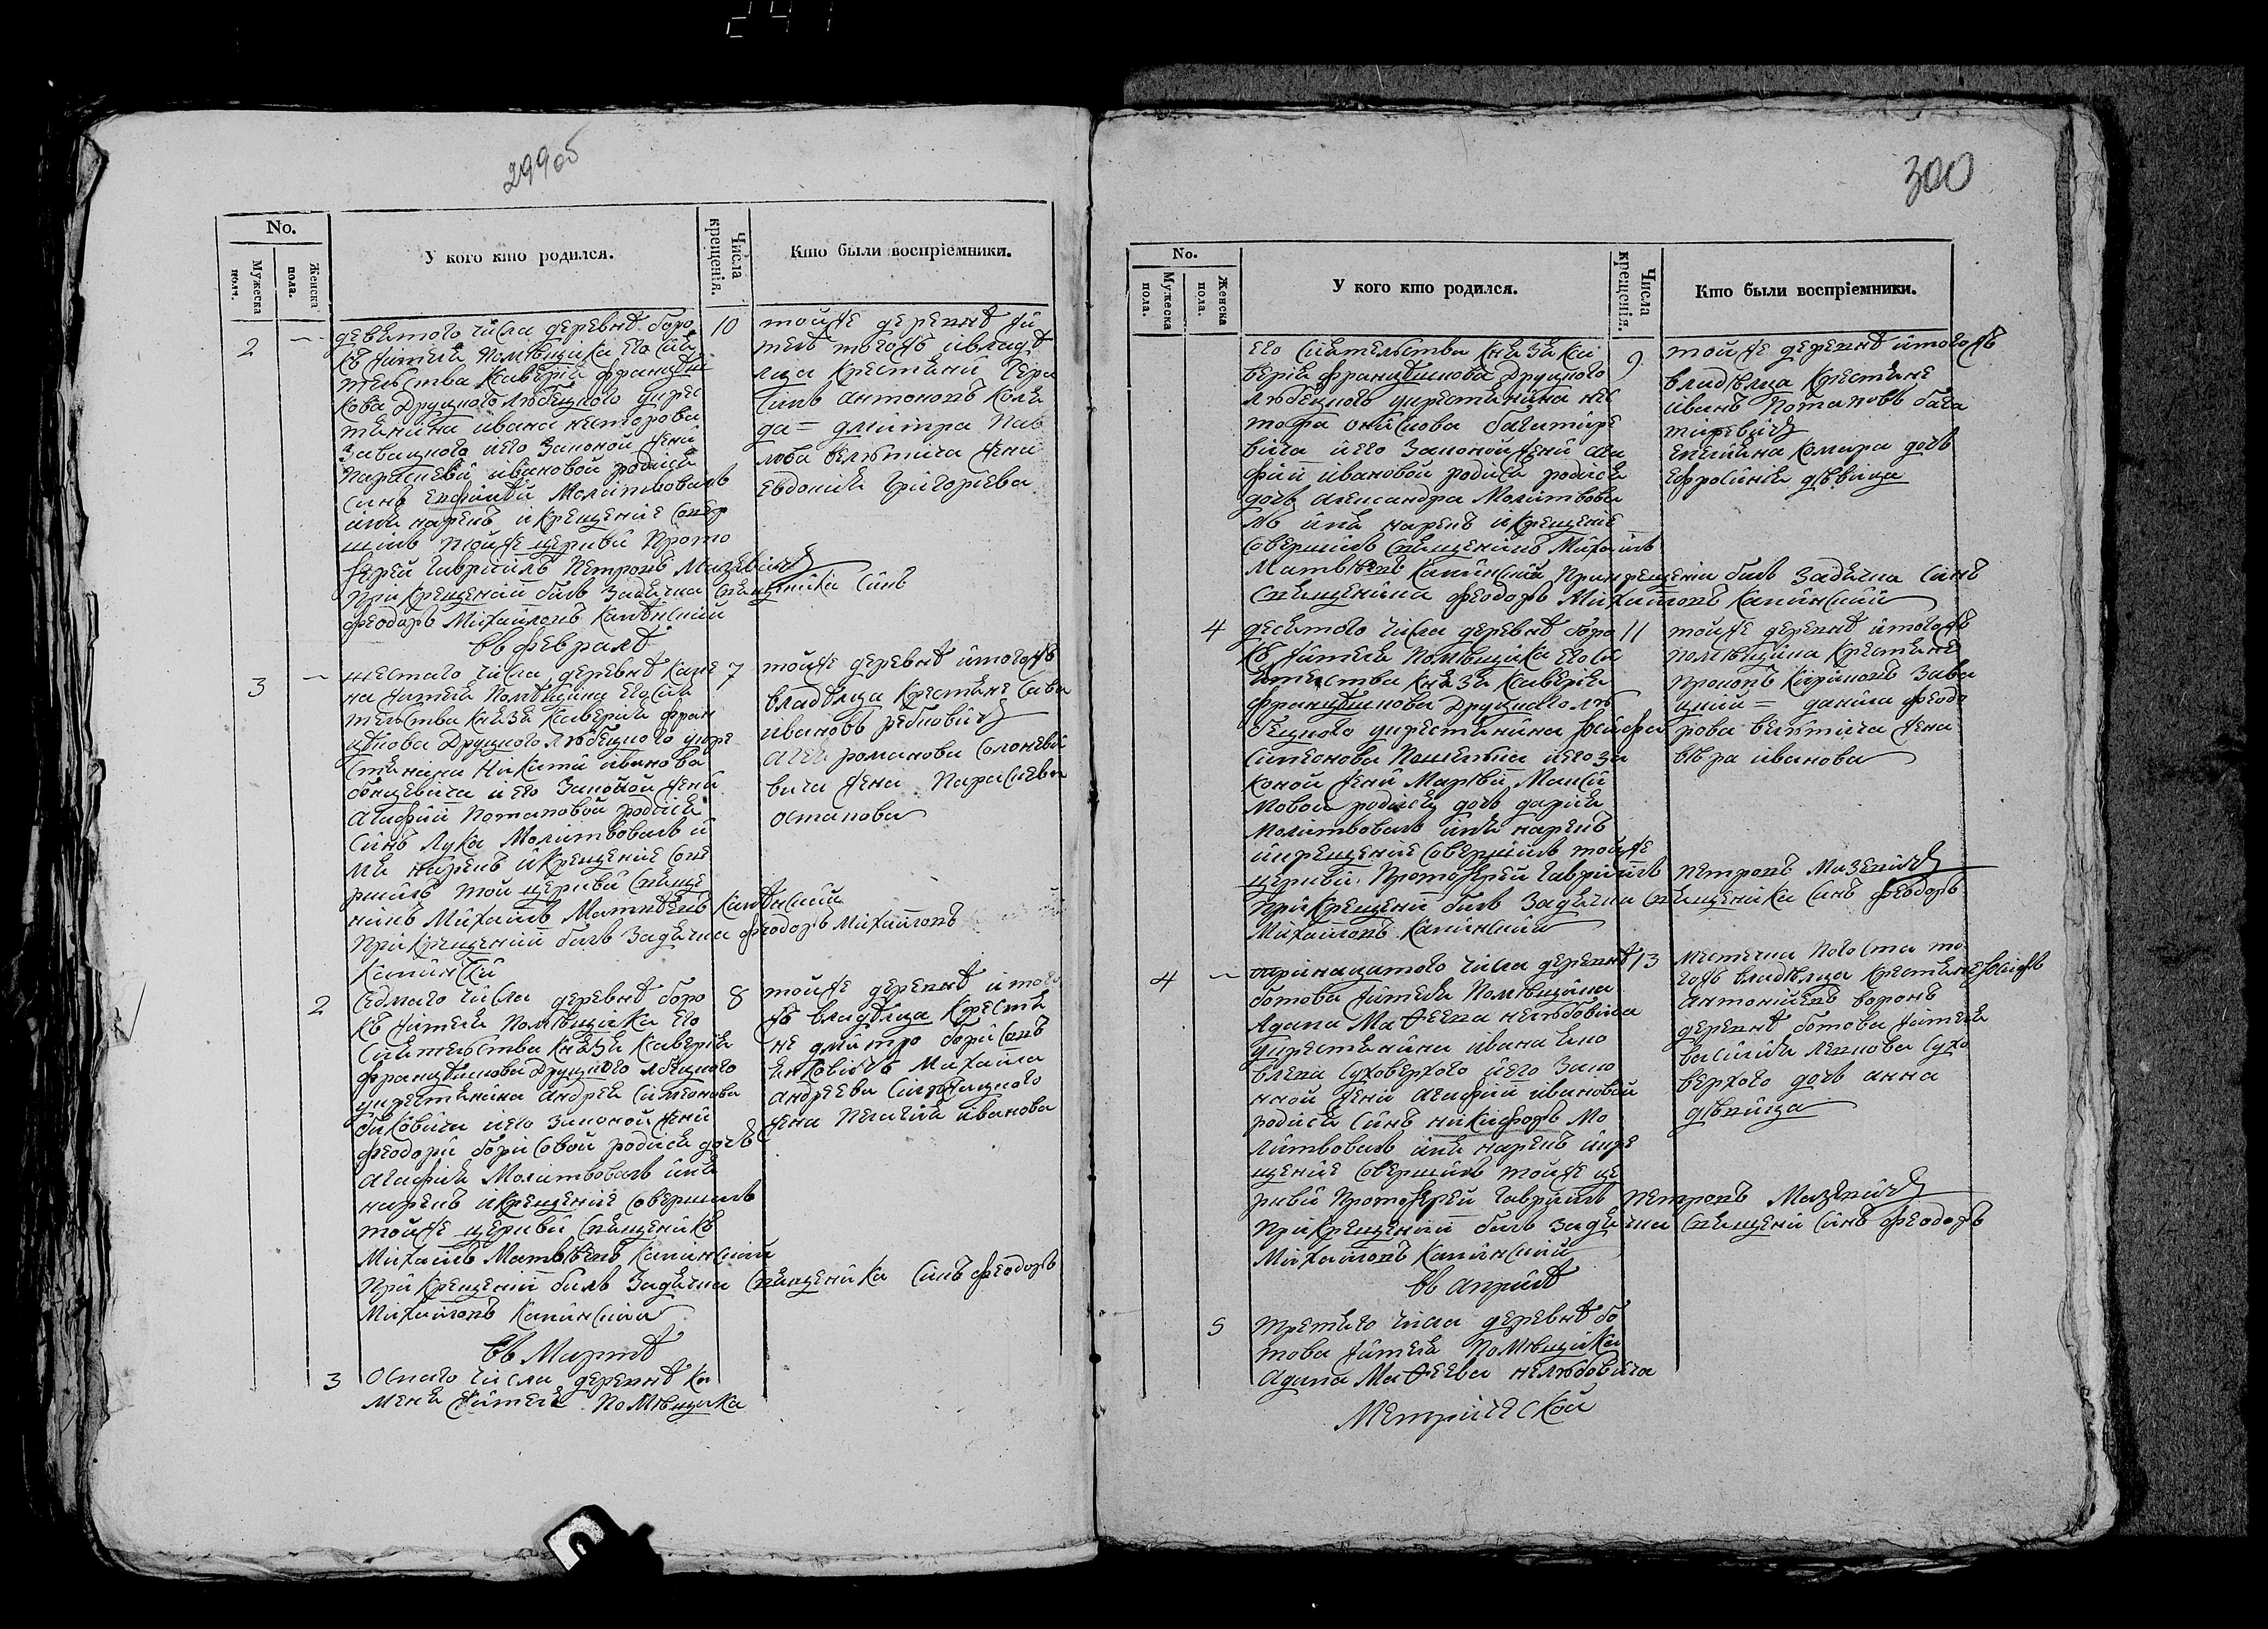 241
299об
No.
Мужеска пола.
Женска пола.
У кого кто родился.
Числа крещенія.
Кто были воспріемники.
2
девятого числа деревнѣ боро
къ жителя помѣщика его сія
тельства Ксаверія францѣш
кова Друцкого любецкого укрес
тянина ивана несторова
Завацкого и его Законой жени
параскевіи ивановой родися
синъ Молитвовалъ
имя нарекъ и крещеніе совер
шилъ тойже церкви прото
іерей Гавріилъ Петровъ Мазевичъ
при крещеніи билъ Задячка священика синъ
феодоръ Михаиловъ
10
тойже деревнѣ жи
тель тогожъ и владѣ
лца крестяни Гера
симъ антоновъ Коля
да = дмитра Пав
лова жена
Евдокия Григоріева
въ февралѣ
3
шестаго числа деревнѣ каме
на жителя помѣщика его сия
тельства князя Ксаверія фран
цѣшкова Друцкого любецкого укре
стянина Никити иванова
и его Законой жени
агафіи Потаповой родися
Синъ Лука Молитвовалъ и
мя нарекъ и крещеніе сове
ршилъ той церкви свяще
никъ Михаилъ Матвѣевъ
при крещеніи билъ Задячка феодоръ Михаиловъ
7
тойже деревнѣ и тогожъ
владѣлца крестяне Сава
ивановъ
романова
вича жена Параскева
остапова
2
Седмаго числа деревнѣ боро
къ жителя помѣщика его
Сиятельства князя Ксаверія
францѣшкова Друцкого любецкого
укрестянина андрея Симеонова
и его законой жени
феодори борисовой родися дочъ
агафия Молитвовалъ имя
нарекъ и крещеніе совершилъ
тойже церкви священикъ
Михаилъ Матвѣевъ Калинский
При крещеніи билъ Задячка священика синъ феодоръ
Михаиловъ Калинский
8
тойже деревнѣ и того
жъ владѣлца крестя
не дмитро борисовъ
Михаила
андреева
жена Пелагия иванова
въ Мартѣ
3
осмаго числа деревнѣ ка
меня жителя помѣщика
300
No.
Мужеска пола.
Женска пола.
У кого кто родился.
Числа крещенія.
Кто были воспріемники.
его сиятельства князя Кса
верія францѣшкова Друцкого
любецкого укрестянина
багатире
вича и его Законой жени ага
фии ивановой родися родися
дочъ александра Молитвова
лъ имя нарекъ и крещение
совершилъ священикъ Михаилъ
Матвѣевъ Калинский при крещеніи билъ Задячка синъ
священика феодоръ Михаиловъ Калинский
9
тойже деревнѣ и тогожъ
владѣлца крестяне
иванъ Потаповъ бага
тиревичъ
комара дочъ
Ефросиния дѣвица
4
десятого числа деревнѣ боро
къ жителя помѣщика его си
ятельства князя Ксаверія
францѣшкова Друцкого лю
бецкого укрестянина
Симеонова и его за
коной жени Марѳии Макси
мовой родися дочъ дария
Молитвовалъ имя нарекъ
и крещеніе совершилъ тойже
церкви Протоіерей Гавріилъ Петровъ Мазевичъ
При крещеніи билъ Задячка священика синъ феодоръ
Михаиловъ Калинский
11
тойже деревнѣ и тогожъ
помѣщика крестяне
Прокопъ Зава
цкий = данила феодо
рова жена
вѣра иванова
4
тринацатого числа деревнѣ
ботова жителя помѣщика
Адама Маѳеева нелюбовича
укрестянина ивана
Суховерхого и его Зако
нной жени агафии ивановой
родися синъ никифоръ Мо
литвовалъ имя нарекъ и кре
щеніе совершилъ тойже це
рквй Протоіерей Гавріилъ Петровъ Мазевичъ
При крещеніи билъ Задячка священи синъ феодоръ
Михаиловъ Калинский
13
местечка Погоста то
гожъ владѣлца крестяне
деревнѣ ботова жителя
василия Сухо
верхого дочъ анна
дѣвица
въ априлѣ
5
Третяго числа деревнѣ бо
това жителя помѣщика
Адама Маѳеева нелюбовича
Метрической